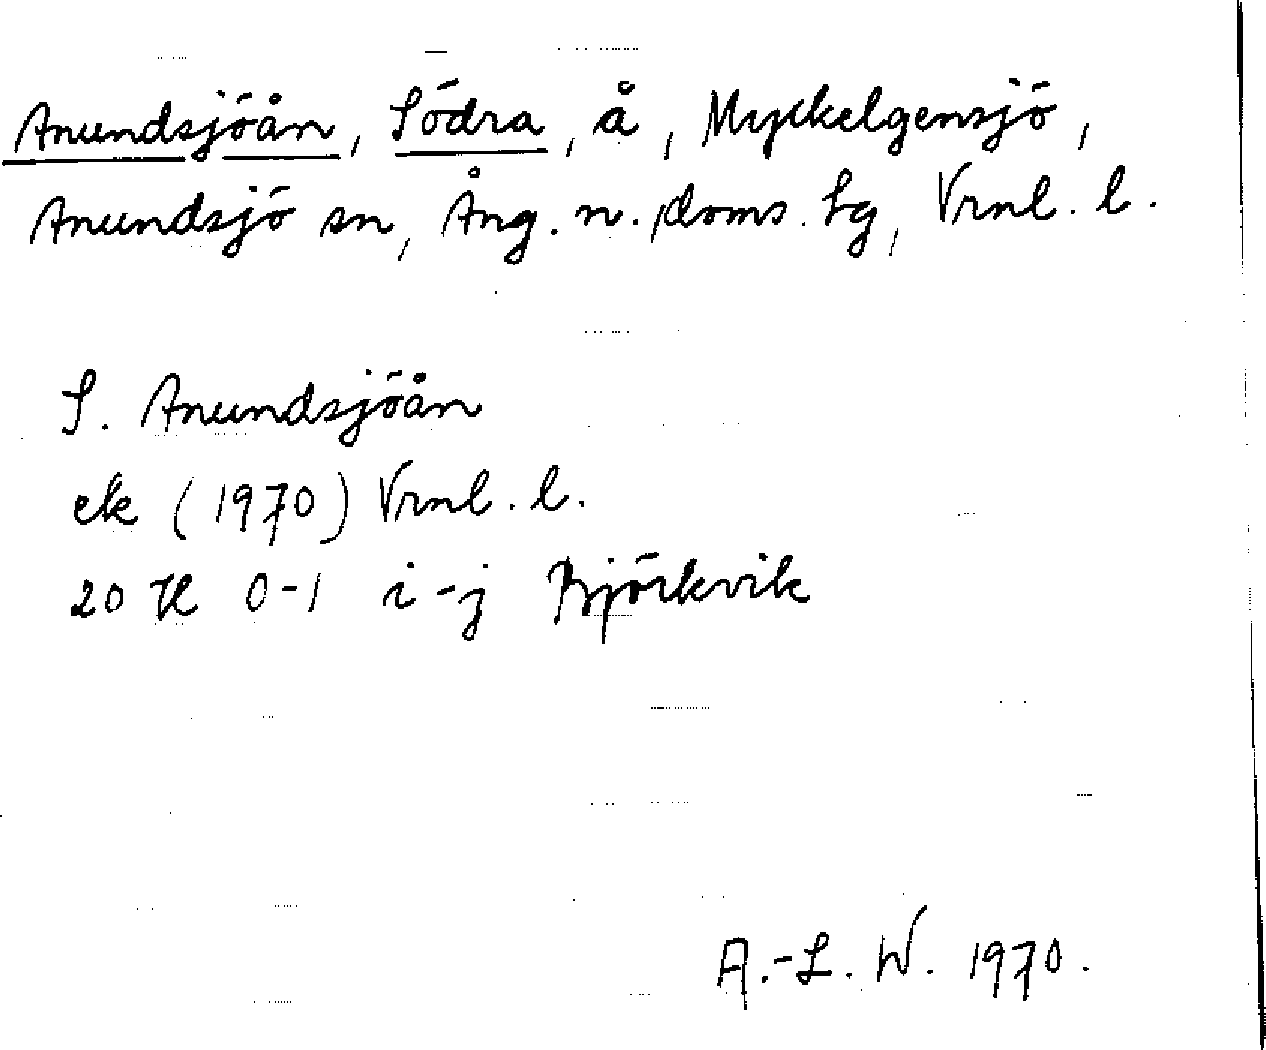 Anundsjöån, Södra, å, Myckelgensjö,
Anundsjö sn, Ång. n. doms. tg, Vrnl. l.
S. Anundsjöån
ek (1970) Vrnl. l.
20 H 0-1 i-j Björkvik
A.-L. W. 1970.